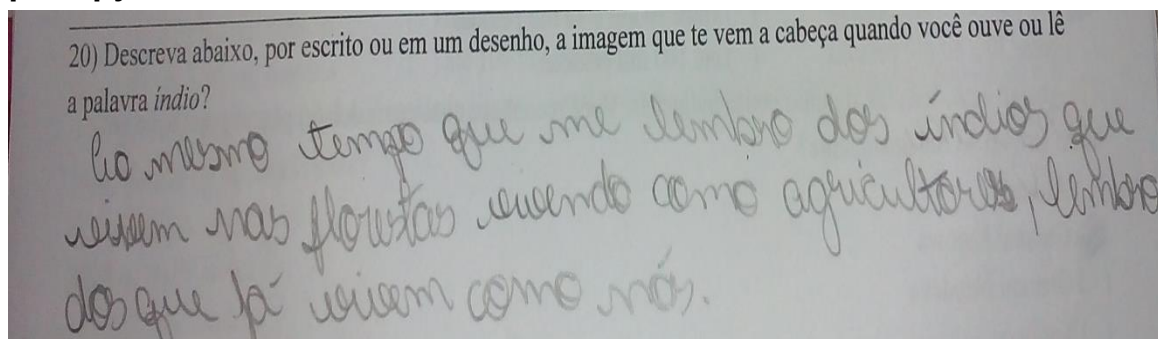 20) Descreva abaixo, por escrito ou em um desenho, a imagem que te vem a cabeça quando você ouve ou lê
a palavra índio?
Ao mesmo tempo que me lembro dos índios que
vivem nas florestas vivendo como agricultores, lembro
dos que já vivem como nós.